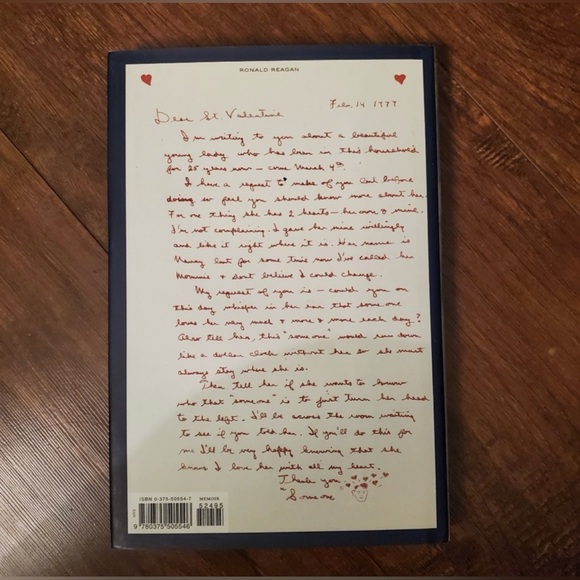 RONALD REAGAN
Feb. 14 1977
Dear St. Valentine
I'm writing to you about a beautiful
young lady who has been in this household
for 25 years now – come March 4th.
I have a request to make of you but before
doing so feel you should know more about her.
For one thing she has 2 hearts – her own & mine.
I'm not complaining. I gave her mine willingly
and like it right where it is. Her name is
Nancy but for some time now I've called her
Mommie & don't believe I could change.
My request of you is – could you on
this day whisper in her ear that someone
loves her very much & more & more each day?
Also tell her, this "someone" would run down
like a dollar clock without her so she must
always stay where she is.
Then tell her if she wants to know
who that "someone" is to just turn her head
to the left. I'll be across the room waiting
to see if you told her. If you'll do this for
me I'll be very happy knowing that she
knows I love her with all my heart.
Thank you
"Someone
ISBN 0-375-50554-7 MEMOIR
52495
9 780375 505546